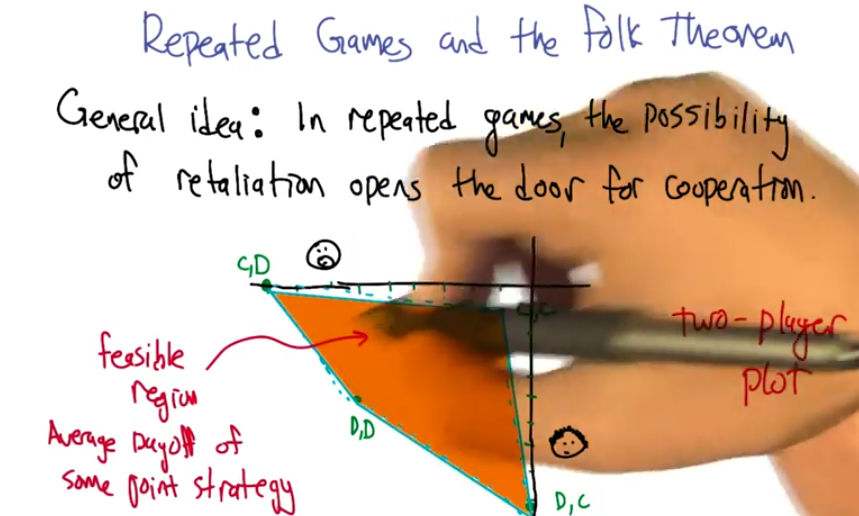 Repeated Games and the Folk Theorem
General idea: In repeated games, the possibility
of retaliation opens the door for cooperation.
C,D
C,C
two-player
plot
feasible
region
Average payoff of
some joint strategy
D,D
D,C